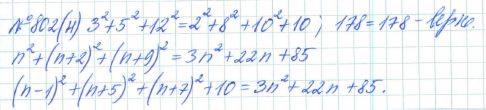 №802(н) 3²+5²+12²=2²+8²+10²+10; 178=178 - верно.
n²+(n+2)²+(n+9)²=3n²+22n+85
(n-1)²+(n+5)²+(n+7)²+10=3n²+22n+85.